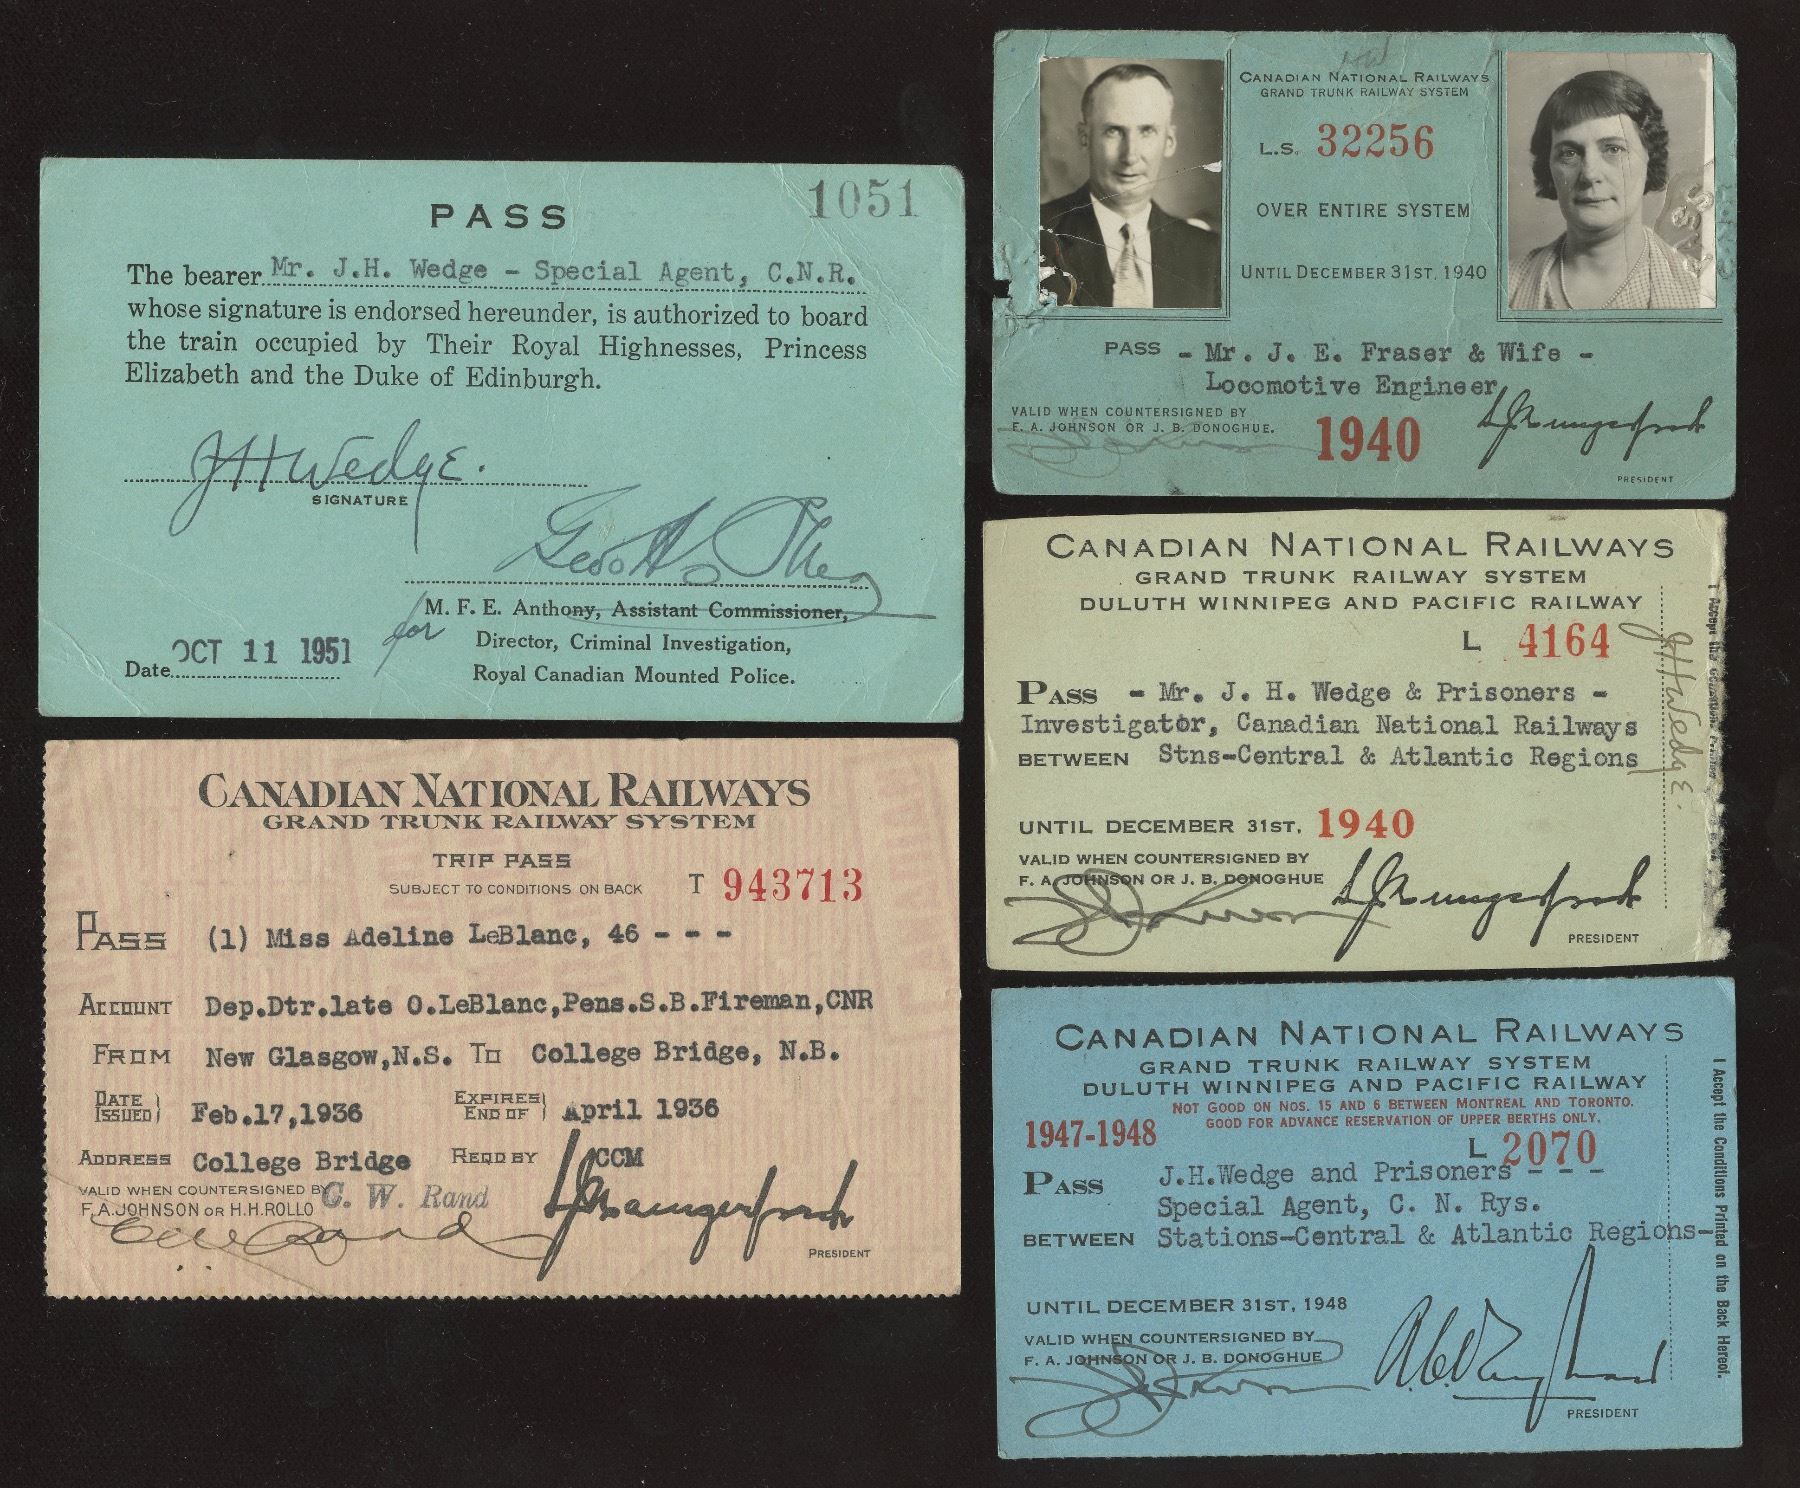 PASS
1051
The bearer Mr. J.H. Wedge - Special Agent, C.N.R.
whose signature is endorsed hereunder, is authorized to board
the train occupied by Their Royal Highnesses, Princess
Elizabeth and the Duke of Edinburgh.
JHWedge.
SIGNATURE
for M. F. E. Anthony, Assistant Commissioner,
Director, Criminal Investigation,
Royal Canadian Mounted Police.
Date OCT 11 1951
CANADIAN NATIONAL RAILWAYS
GRAND TRUNK RAILWAY SYSTEM
TRIP PASS
SUBJECT TO CONDITIONS ON BACK T 943713
PASS (1) Miss Adeline LeBlanc, 46 - - -
ACCOUNT Dep.Dtr.late O.LeBlanc,Pens.S.B.Fireman,CNR
FROM New Glasgow,N.S. TO College Bridge, N.B.
DATE ISSUED Feb.17,1936 EXPIRES END OF April 1936
ADDRESS College Bridge REQD BY CCM
VALID WHEN COUNTERSIGNED BY C. W. Rand
F.A.JOHNSON OR H.H.ROLLO
PRESIDENT
CANADIAN NATIONAL RAILWAYS
GRAND TRUNK RAILWAY SYSTEM
L.S. 32256
OVER ENTIRE SYSTEM
UNTIL DECEMBER 31ST, 1940
PASS - Mr. J. E. Fraser & Wife -
Locomotive Engineer
VALID WHEN COUNTERSIGNED BY
F. A. JOHNSON OR J. B. DONOGHUE.
1940
S J Hungerford
PRESIDENT
CANADIAN NATIONAL RAILWAYS
GRAND TRUNK RAILWAY SYSTEM
DULUTH WINNIPEG AND PACIFIC RAILWAY
L 4164
PASS - Mr. J. H. Wedge & Prisoners -
Investigator, Canadian National Railways
BETWEEN Stns-Central & Atlantic Regions
UNTIL DECEMBER 31ST, 1940
VALID WHEN COUNTERSIGNED BY
F. A. JOHNSON OR J. B. DONOGHUE
S J Hungerford
PRESIDENT
JHWedge.
CANADIAN NATIONAL RAILWAYS
GRAND TRUNK RAILWAY SYSTEM
DULUTH WINNIPEG AND PACIFIC RAILWAY
NOT GOOD ON NOS. 15 AND 6 BETWEEN MONTREAL AND TORONTO.
GOOD FOR ADVANCE RESERVATION OF UPPER BERTHS ONLY.
1947-1948
L 2070
PASS J.H.Wedge and Prisoners - - -
Special Agent, C. N. Rys.
BETWEEN Stations-Central & Atlantic Regions-
UNTIL DECEMBER 31ST, 1948
VALID WHEN COUNTERSIGNED BY
F. A. JOHNSON OR J. B. DONOGHUE
PRESIDENT
I Accept the Conditions Printed on the Back Hereof.